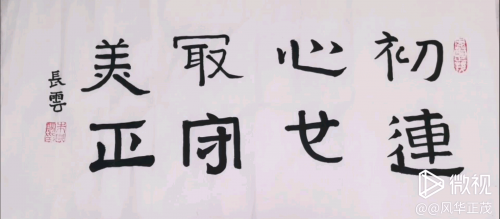 初連
心世
冣守
美正
長雲
微视
@@风华正茂